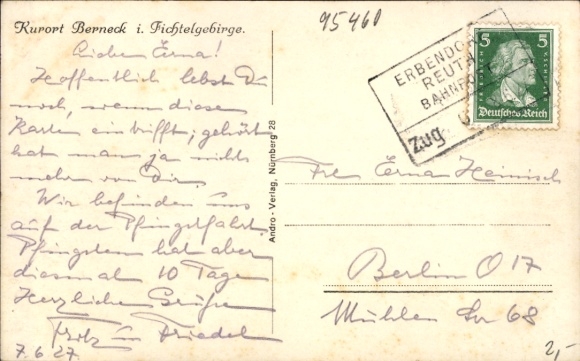 Kurort Berneck i. Fichtelgebirge.
95460
Lieben Erna!
Hoffentlich lebst Du
noch, wenn diese
Karten eintrifft; gehört
hat man ja nichts
mehr von Dir.
Wir befinden uns
auf der Pfingstfahrt
Pfingsten hat aber
diesmal 10 Tage
Herzliche Grüße
Fritz u Friedel
7.6.27
Andro-Verlag, Nürnberg 28
ERBENDORF
REUTH
BAHNPOST
Zug
5 5
FRIEDRICH
Deutsches Reich
Frl Erna Heinisch
Berlin O 17
Mühlen 68
2,-